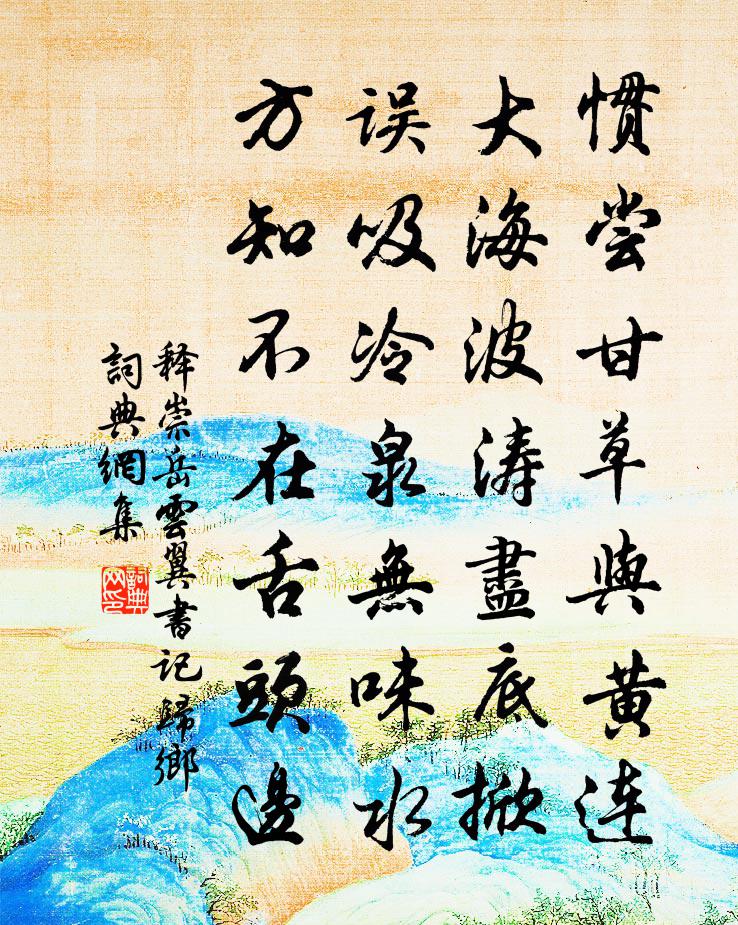 惯尝甘草與黄连
大海波涛盡底掀
误吸冷泉無味水
方知不在舌頭邊
释崇岳雲翼書記歸鄉
詞典網集
詞典网印